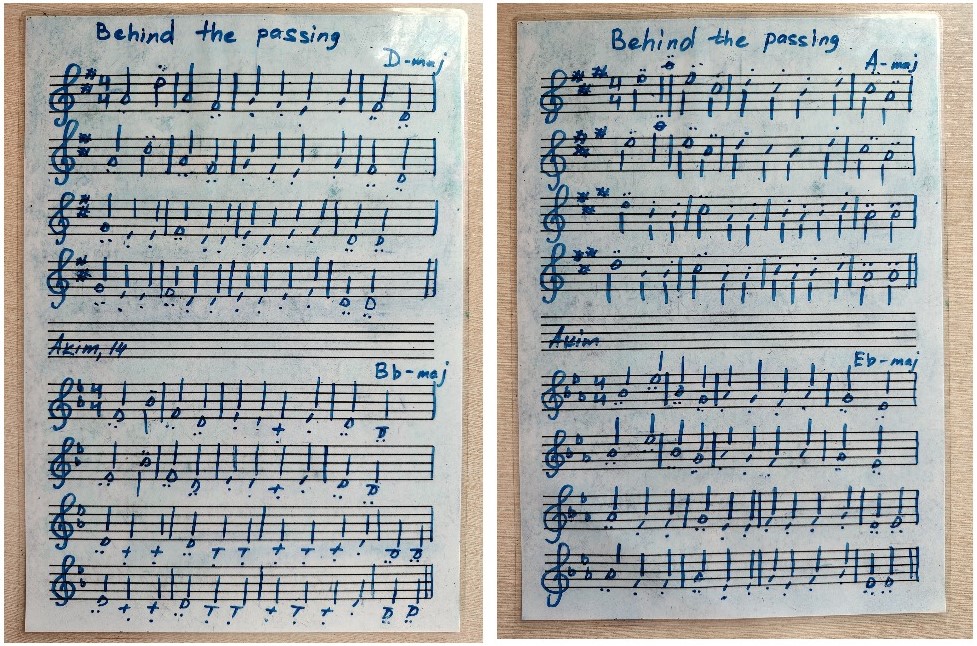 Behind the passing
D-maj
4
4
Akim, 14
Bb-maj
4
4
Behind the passing
A-maj
4
4
Akim
Eb-maj
4
4